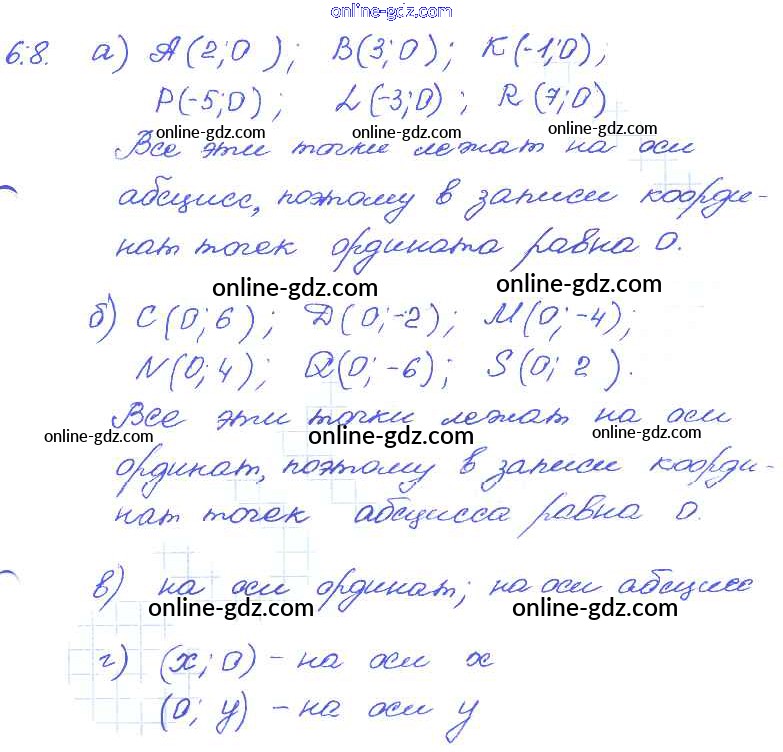 online-gdz.com
6.8. а) A(2;0); B(3;0); K(-1;0);
P(-5;0); L(-3;0); R(7;0)
online-gdz.com online-gdz.com online-gdz.com
Все эти точки лежат на оси
абсцисс, поэтому в записи коорди-
нат точек ордината равна 0.
online-gdz.com online-gdz.com
б) C(0;6); D(0;-2); M(0;-4);
N(0;4); Q(0;-6); S(0; 2).
Все эти точки лежат на оси
online-gdz.com online-gdz.com online-gdz.com
ординат, поэтому в записи коорди-
нат точек абсцисса равна 0.
в) на оси ординат; на оси абсцисс
online-gdz.com online-gdz.com online-gdz.com
г) (x; 0) - на оси x
(0; y) - на оси y